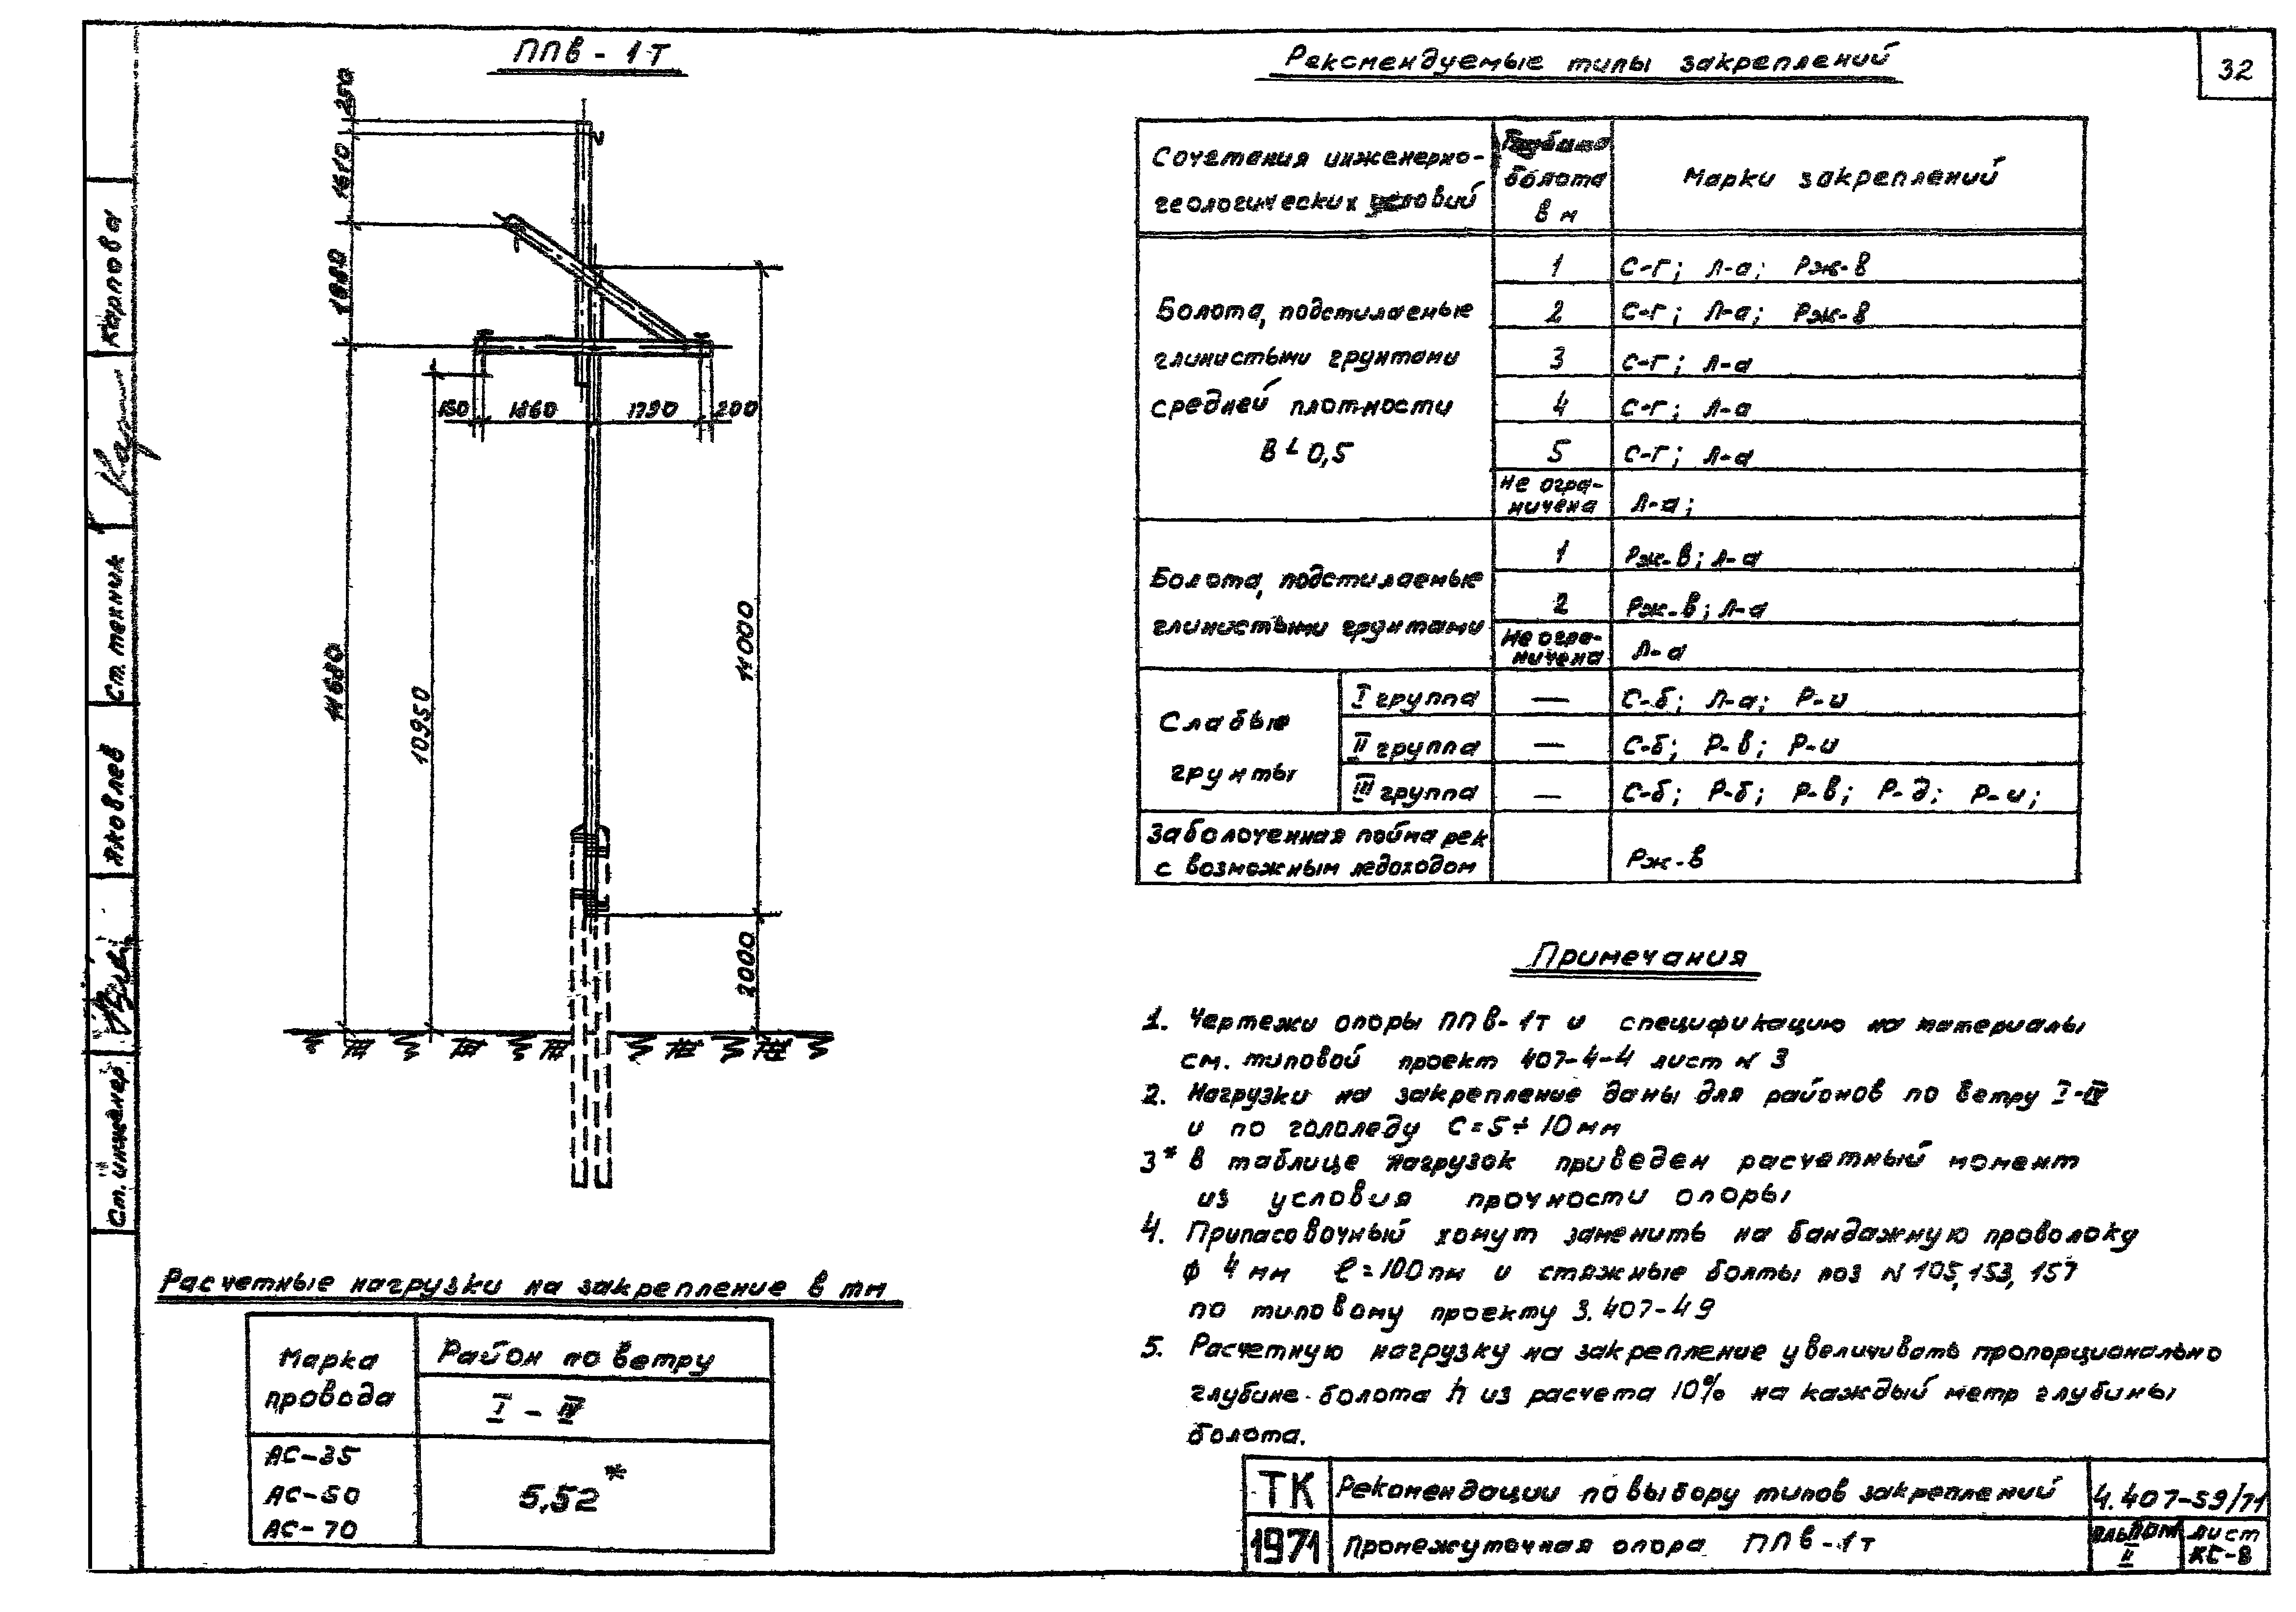 ППв - 1Т
Рекомендуемые типы закреплений
32
250
1610
1880
11680
10950
150
1860
1790
200
11000
2000
Сочетания инженерно-
геологических условий
Глубина
болота
в м
Марки закреплений
Болота, подстилаемые
глинистыми грунтами
средней плотности
В ∠ 0,5
1
С-г; Л-а; Рж-в
2
С-г; Л-а; Рж-в
3
С-г; Л-а
4
С-г; Л-а
5
С-г; Л-а
не огра-
ничена
Л-а;
Болота, подстилаемые
глинистыми грунтами
1
Рж-в; Л-а
2
Рж-в; Л-а
Не огра-
ничена
Л-а
Слабые
грунты
I группа
—
С-б; Л-а; Р-и
II группа
—
С-б; Р-в; Р-и
III группа
—
С-б; Р-б; Р-в; Р-д; Р-и;
Заболоченная пойма рек
с возможным ледоходом
Рж-в
Примечания
1. Чертежи опоры ППв-1т и спецификацию на материалы
см. типовой проект 407-4-4 лист N 3
2. Нагрузки на закрепление даны для районов по ветру I-IV
и по гололеду С=5÷10мм
3* В таблице нагрузок приведен расчетный момент
из условия прочности опоры
4. Припасовочный хомут заменить на бандажную проволоку
ф 4 мм ℓ=100пм и стяжные болты поз N 105, 153, 157
по типовому проекту 3.407-49
5. Расчетную нагрузку на закрепление увеличивать пропорционально
глубине болота h из расчета 10% на каждый метр глубины
болота.
Расчетные нагрузки на закрепление в тм
Марка
провода
Район по ветру
I - IV
АС-35
АС-50
АС-70
5,52*
ТК
1971
Рекомендации по выбору типов закреплений
Промежуточная опора ППв-1т
4.407-59/71
Альбом
II
лист
КС-8
Карпова
Ст. техник
Яковлев
Ст. инженер